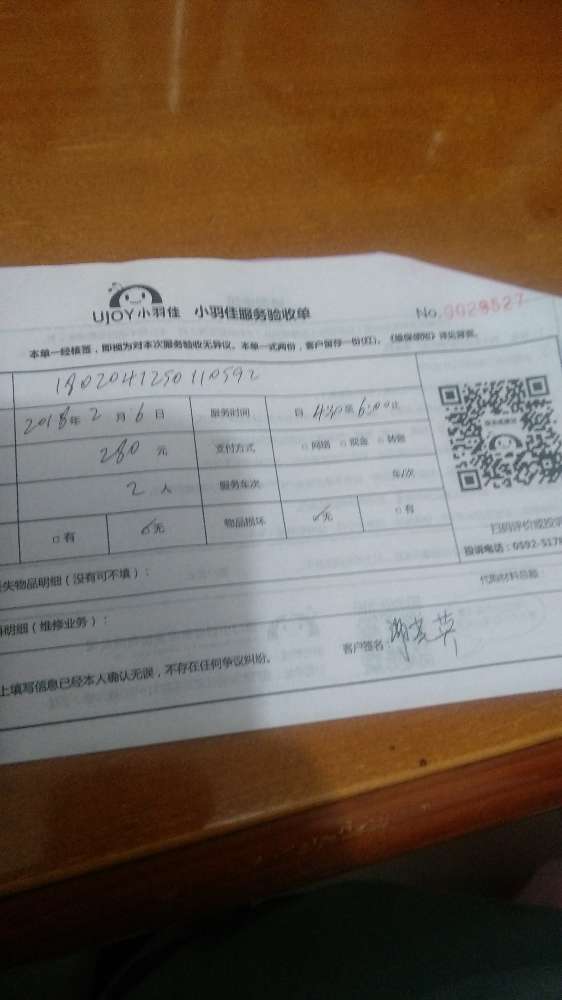 UJOY小羽佳 小羽佳服务验收单 No.0028527
本单一经核签,即视为对本次服务验收无异议。本单一式两份,客户留存一份(红)。
1802041250110592
2018年2月6日 服务时间 自4:30至6:00止
280元 支付方式 □网络 □现金 □转账
2人 服务车次 车/次
□有 无 物品损坏 无 □有
扫码评价或投诉
投诉电话:0592-517
失物品明细(没有可不填): 代购材料总额
明细(维修业务):
客户签名:
上填写信息已经本人确认无误,不存在任何争议纠纷。